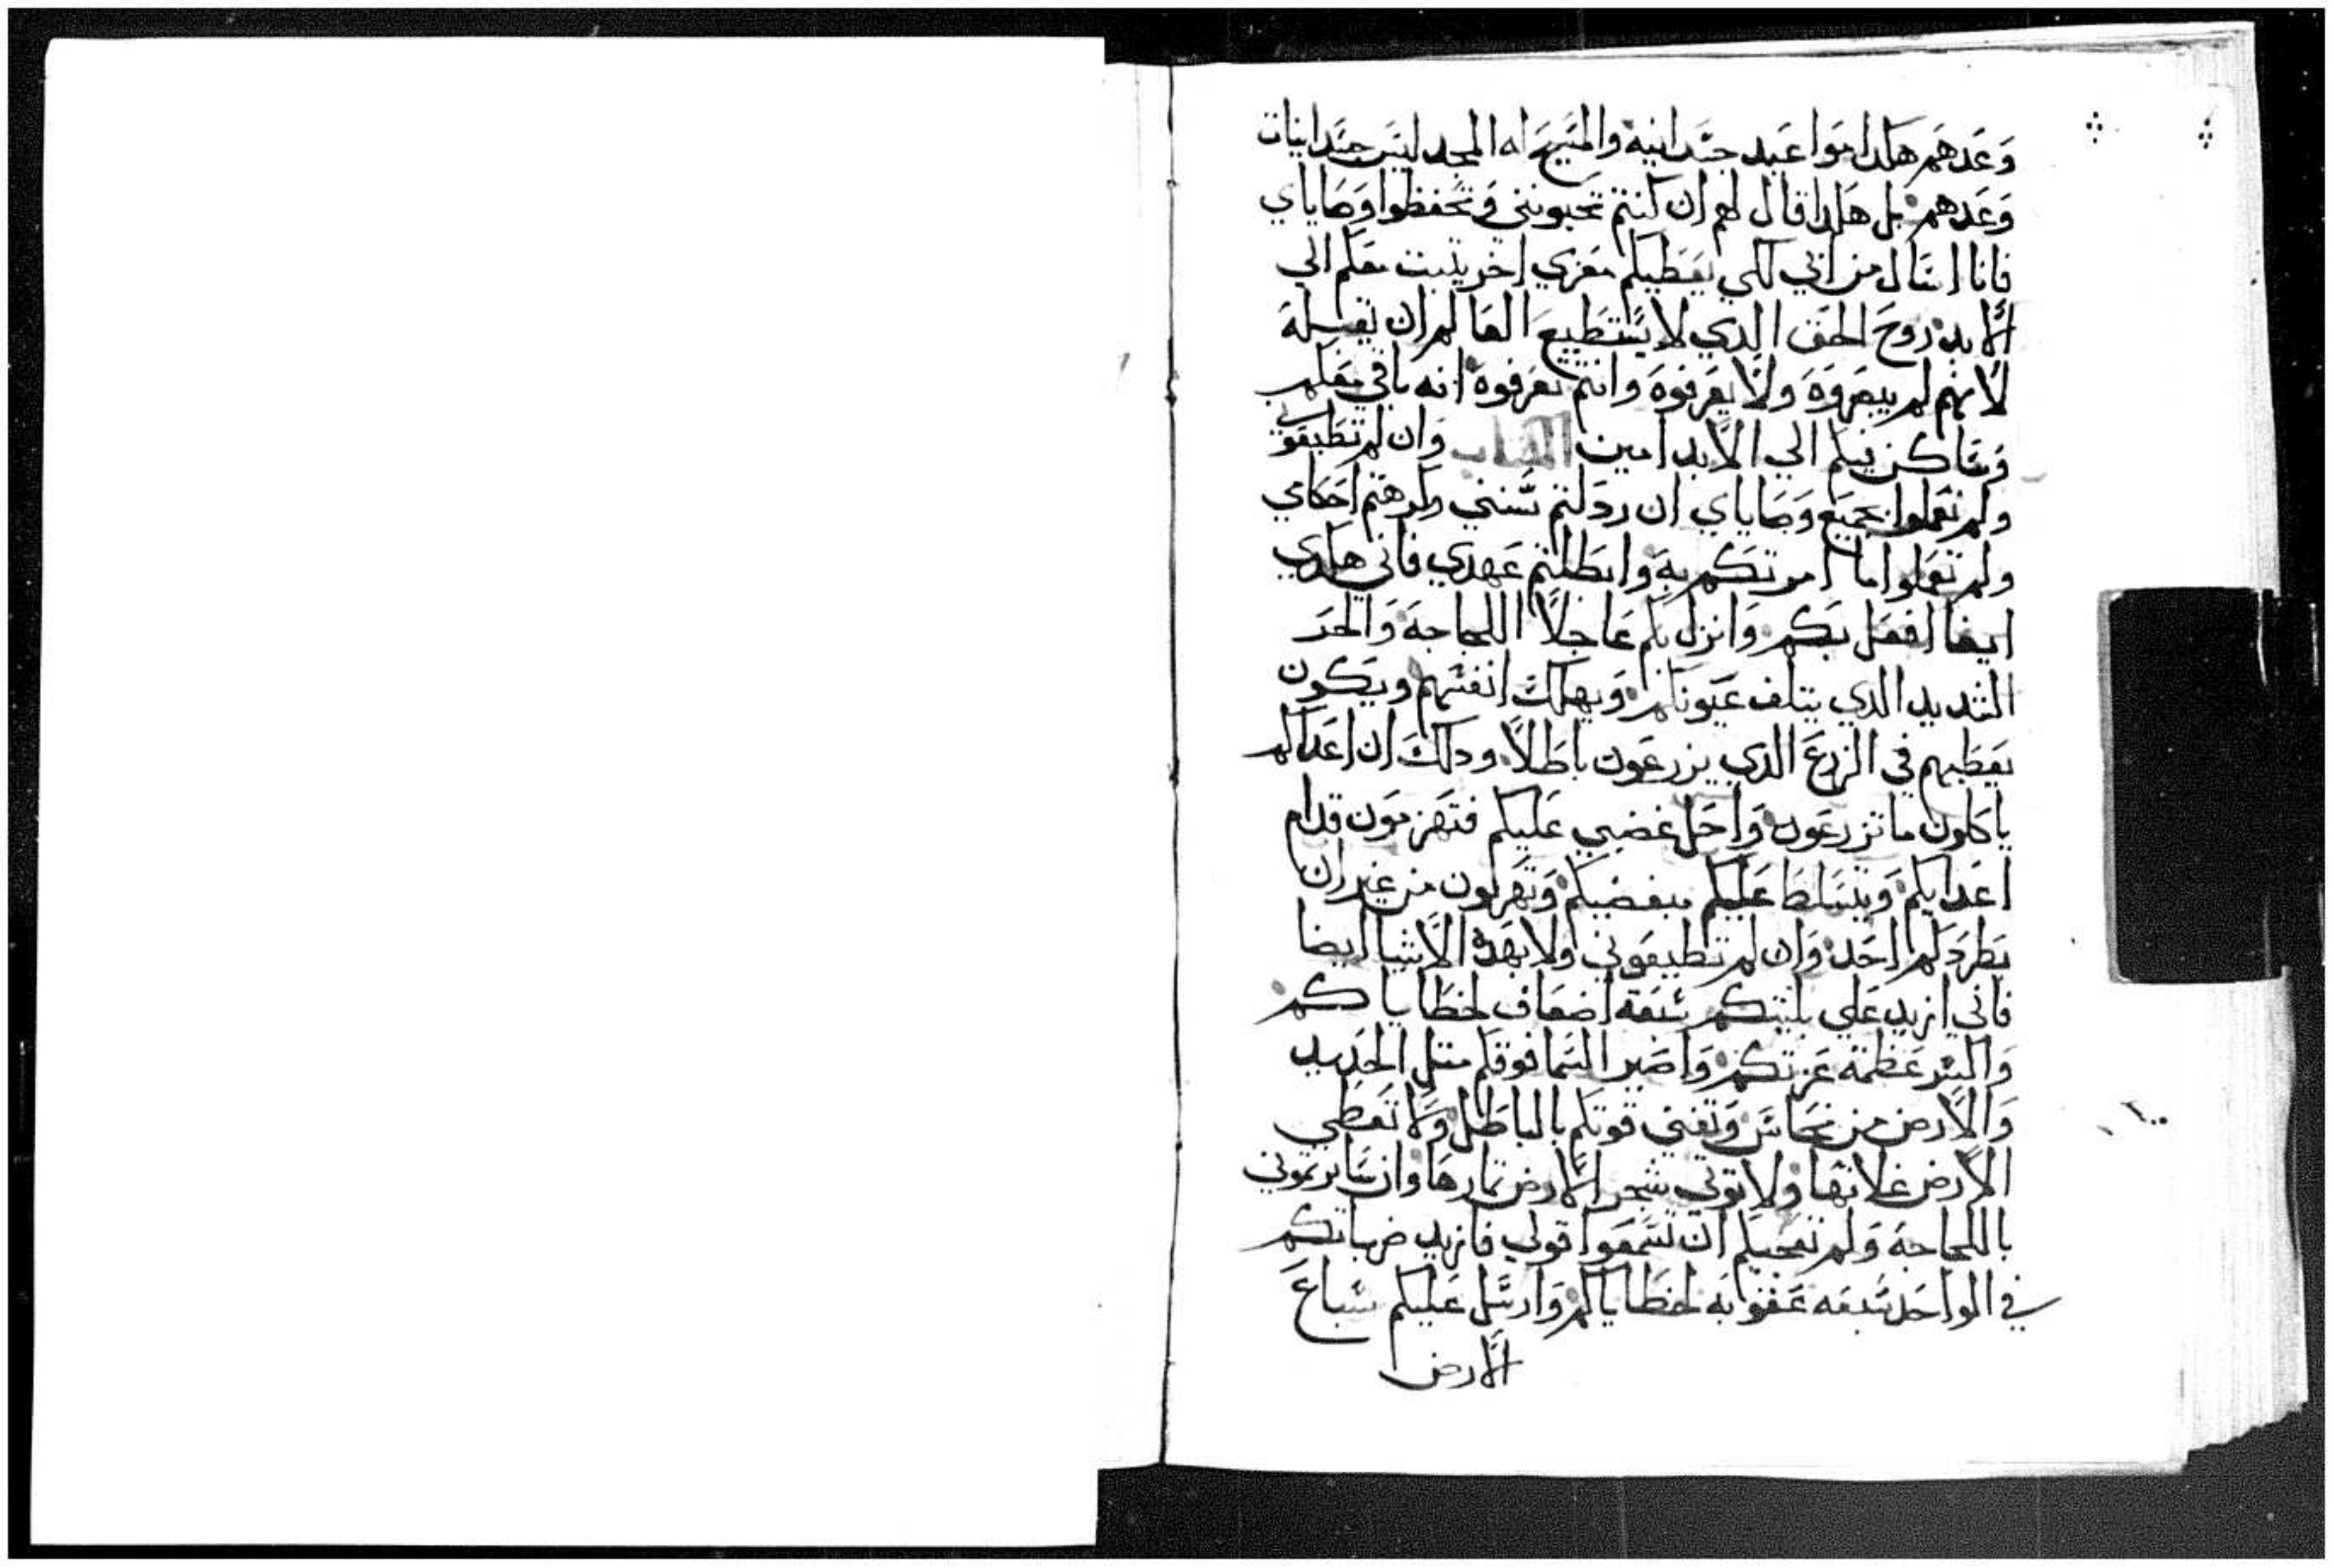 وَعَدهَم هكدا مَواعَيد جسَدانيه والمسَيح له المجد ليسَ جسَدانيات
وَعَدهم بل هكدا قال لهم ان كنتم تحبوننى وَتحَفظوا وَصَاياي
فانا اسَال من ابي لكي يعَطيكم معَزي اخر يثبت معَكم الي
الاَبد روحَ الحَق الدي لا يسَتطيعَ العَالم ان يقبله
لاَنهم لم يبصَروَهَ ولاَ يعَرفوَهَ وانتم تعَرفوهَ انه باقي معَكم
وَسَاكن فيكم الي الاَبد امين الكتاب وَان لم تطيعَوني
ولم تعَملوا بجَميَع وَصَاياي ان ردَلتم سَنني وكرهَتم احَكامي
ولم تعَملوا ما امرتكم بهَ وابَطلتم عَهدي فاني هكدي
ايضا افعَل بَكم وَانزل بكم عَاجلاً اللجاجهَ وَالحَر
الشديد الدي يتلف عَيَونكم وَيهلكَ انفسَهم ويَكون
تعَطبهم في الزرعَ الدي يزرعَون باطَلاً ودلكَ ان اعَداكم
ياكلون ما تزرعَون وَاحَل غضبي عَليكم فتهَزموَن قدام
اعَدايكم وَيتسَلطَ عَليكم مبغضيكم وَتهَربون من غير ان
يَطرَدكم احَد وَان لم تطيعَوني ولا بهَدهَ الاَشيا ايضا
فاني ازيد عَلي بليتكم سَبعَة اضعَاف لخطَاياكم
وَاكسَر عَظمة عَزتكم وَاصَير السَما فوقكم مثل الحَديد
وَالاَرض من نحَاسَ وَتفني قوتكم بالباطَل وَلا تعَطي
الاَرض غلاتهَا ولا توتي شجر الاَرض ثمارهَا وَان سَايرتموني
باللجاجهَ وَلم تعَجبكم ان تسَمعَوا قولي فازيد ضرباتكم
في الواحَد سَبعَه عَقوبَه لخطَاياكم وَارسَل عَليكم سَباعَ
الاَرض